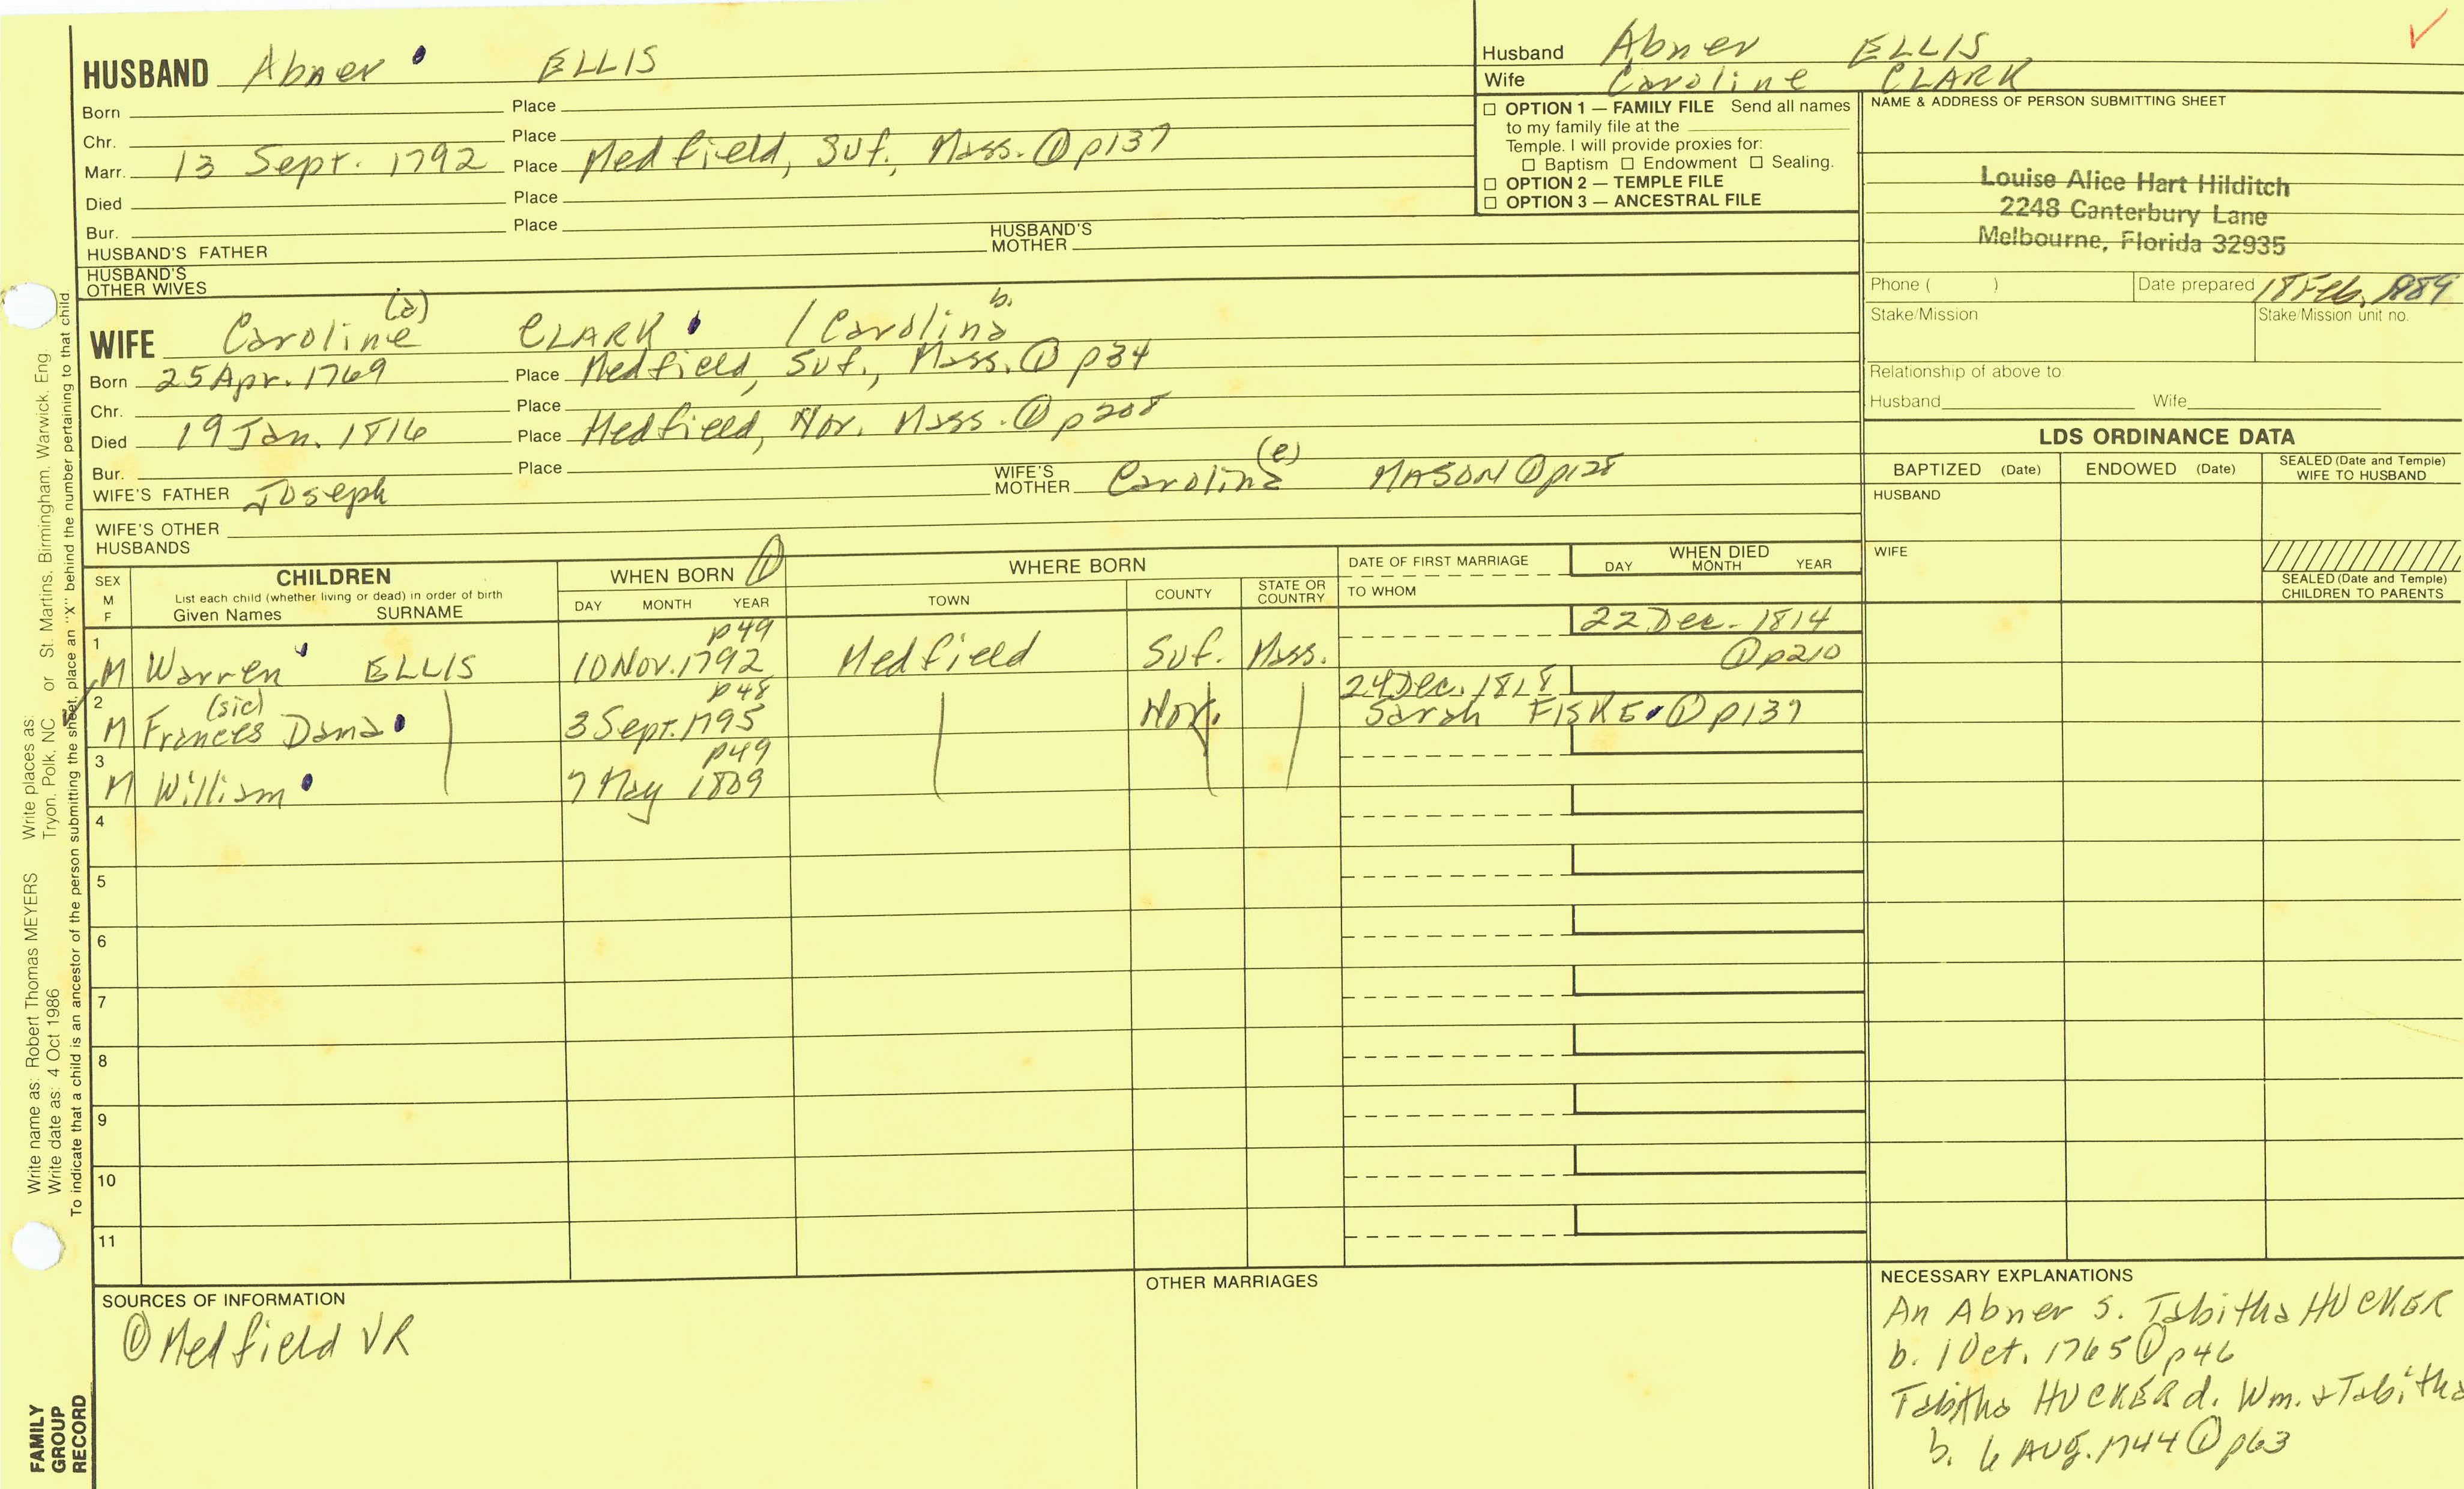 HUSBAND Abner ELLIS
Born Place
Chr. Place
Marr. 13 Sept. 1792 Place Medfield, Suf. Mass. ① p137
Died Place
Bur. Place
HUSBAND'S FATHER HUSBAND'S MOTHER
HUSBAND'S OTHER WIVES
WIFE Caroline (a) CLARK / Carolina b.
Born 25 Apr. 1769 Place Medfield, Suf., Mass. ① p34
Chr. Place
Died 19 Jan. 1816 Place Medfield, Nor. Mass. ① p208
Bur. Place
WIFE'S FATHER Joseph WIFE'S MOTHER Carolina (e) MASON ① p128
WIFE'S OTHER HUSBANDS
Husband Abner ELLIS
Wife Caroline CLARK
□ OPTION 1 — FAMILY FILE Send all names
to my family file at the
Temple. I will provide proxies for:
□ Baptism □ Endowment □ Sealing.
□ OPTION 2 — TEMPLE FILE
□ OPTION 3 — ANCESTRAL FILE
NAME & ADDRESS OF PERSON SUBMITTING SHEET
Louise Alice Hart Hilditch
2248 Canterbury Lane
Melbourne, Florida 32935
Phone ( ) Date prepared 18 Feb. 1989
Stake/Mission Stake/Mission unit no.
Relationship of above to:
Husband Wife
LDS ORDINANCE DATA
BAPTIZED (Date) ENDOWED (Date) SEALED (Date and Temple) WIFE TO HUSBAND
HUSBAND
WIFE
SEALED (Date and Temple) CHILDREN TO PARENTS
SEX M F
CHILDREN
List each child (whether living or dead) in order of birth
Given Names SURNAME
WHEN BORN ①
DAY MONTH YEAR
WHERE BORN
TOWN COUNTY STATE OR COUNTRY
DATE OF FIRST MARRIAGE
TO WHOM
WHEN DIED
DAY MONTH YEAR
1 p49 22 Dec. 1814
M Warren ELLIS 10 Nov. 1792 Medfield Suf. Mass. ① p210
2 (sic) p48 24 Dec. 1818
M Frances Dana 3 Sept. 1795 Nor. Sarah FISKE ① p137
3 p49
M William 7 May 1809
4
5
6
7
8
9
10
11
SOURCES OF INFORMATION
① Medfield VR
OTHER MARRIAGES
NECESSARY EXPLANATIONS
An Abner s. Tabitha HUCKER
b. 1 Oct. 1765 ① p46
Tabitha HUCKER d. Wm. + Tabitha
b. 6 AUg. 1744 ① p63
Write name as: Robert Thomas MEYERS Write places as: St. Martins, Birmingham, Warwick, Eng.
Write date as: 4 Oct 1986 Tryon, Polk, NC or
To indicate that a child is an ancestor of the person submitting the sheet, place an "X" behind the number pertaining to that child.
FAMILY
GROUP
RECORD